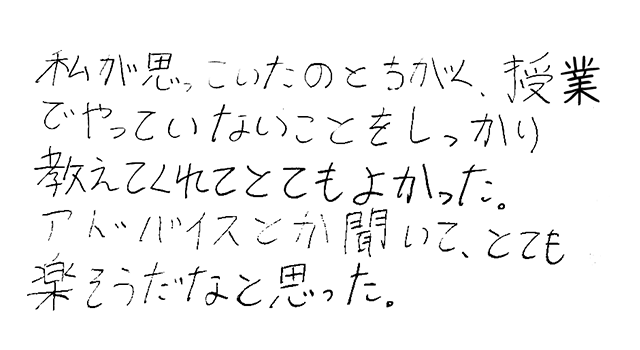 私が思っていたのとちがく、授業
でやっていないことをしっかり
教えてくれてとてもよかった。
アドバイスとか聞いて、とても
楽そうだなと思った。